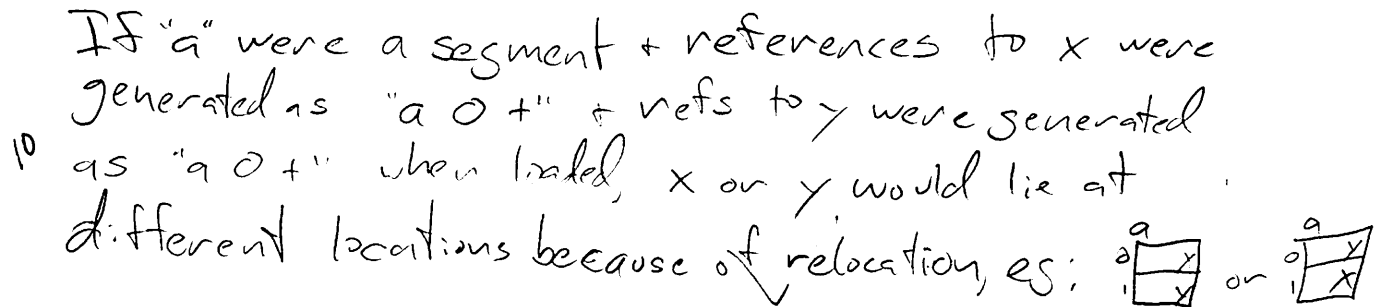 If "a" were a segment + references to x were
generated as "a 0 +" + refs to y were generated
10 as "a 0 +" when loaded, x or y would lie at
different locations because of relocation, eg: a 0 x 1 y or a 0 y 1 x